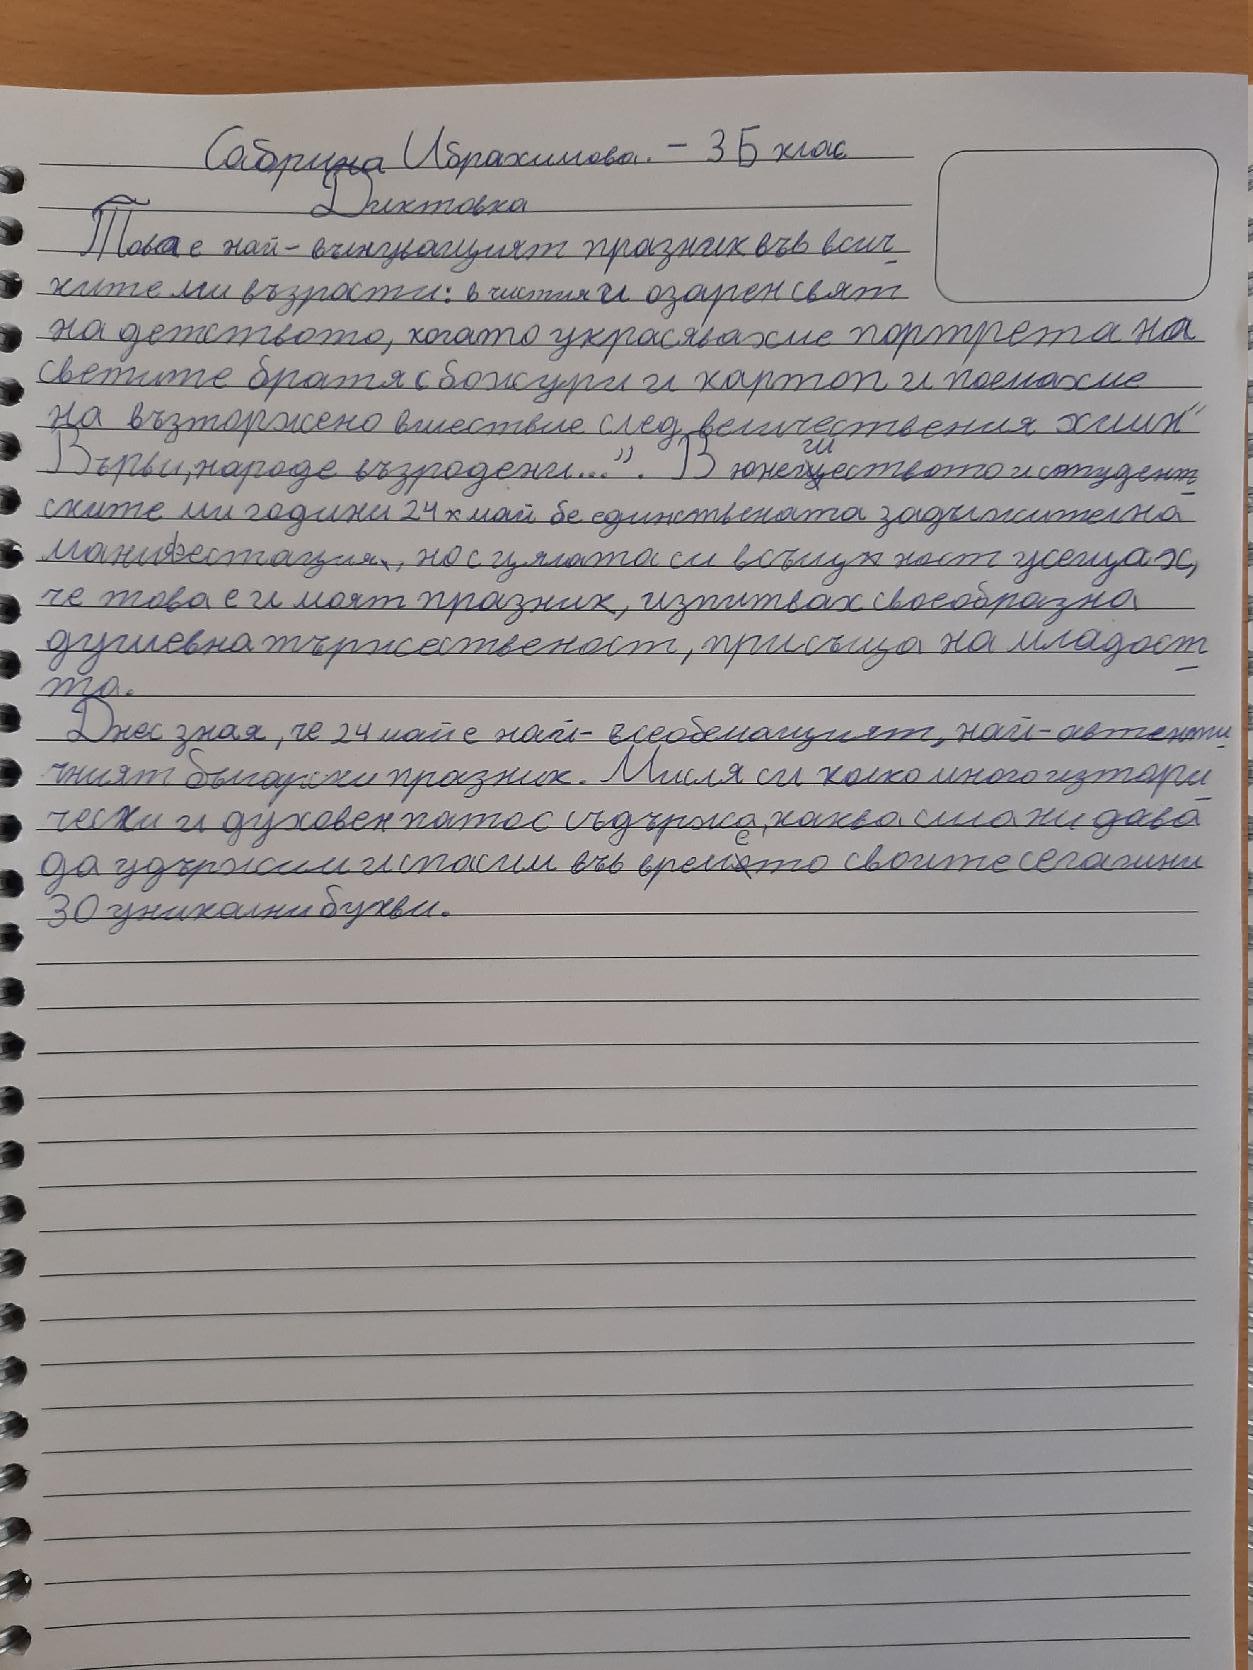 Сабрина Ибрахимова. - 3 Б клас
Диктовка
Това е най-вълнуващият празник във всич-
ките ми възрасти: в чистия и озарен свят
на детството, когато украсявахме портрета на
светите братя с божури и картоп и поемахме
на възторжено шествие след величествения химн "
Върви, народе възродени...". В юношеството и студент-
ските ми години 24 май бе единствената задължителна
манифестация, но с цялата си всъщност усещах,
че това е и моят празник, изпитвах своеобразна
душевна тържественост, присъща на младост-
та.
Днес зная, че 24 май е най-всеобемащият, най-автенти-
чният български празник. Мисля си колко много изтори-
чески и духовен патос съдържа, каква сила ни дава
да удържим и спасим във времето своите сегашни
30 уникални букви.